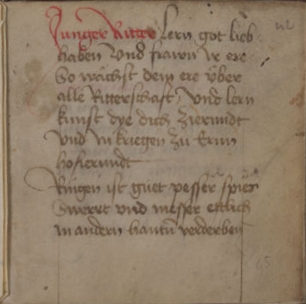 Junger Ritter lern got lieb
haben Vnd frawn ir ere
So wächst dein ere vber
alle Ritterschaft, vnd lern
kunst dye dich zierendt
vnd in kriegen zu Ernn
hofierendt
Ringen ist guet pesser spiess
Swert vnd messer ettlich
in andern hantn verderben